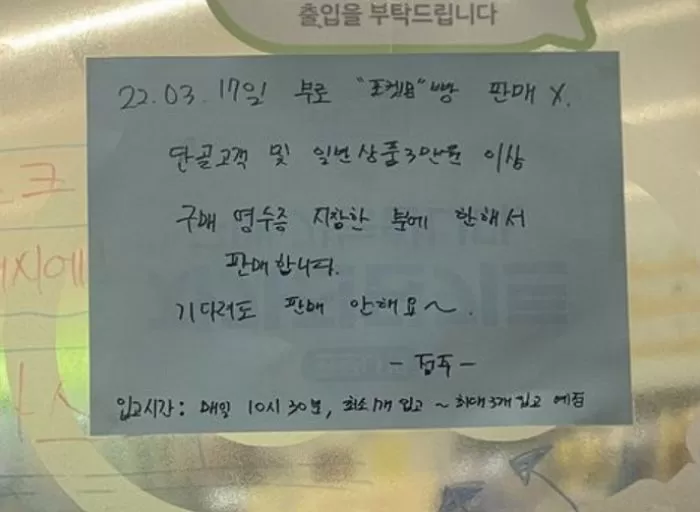 출입을 부탁드립니다
22.03.17일 부로 "포켓몬"빵 판매 X.
단골고객 및 일반상품3만원 이상
구매 영수증 지참한 분에 한해서
판매합니다.
기다려도 판매 안해요~.
- 점주 -
입고시간: 매일 10시 30분, 최소1개 입고 ~ 최대3개 입고 예정